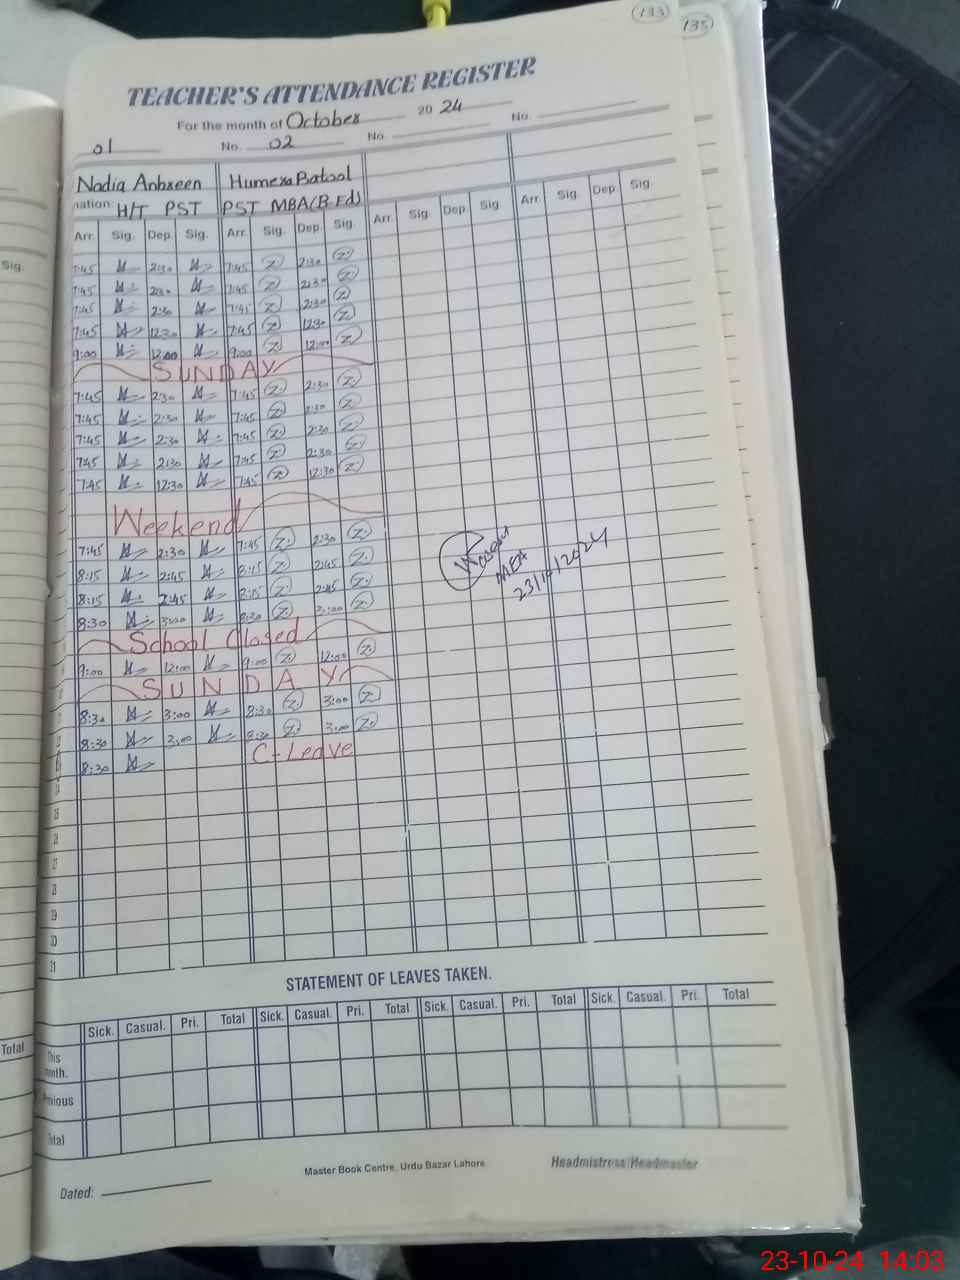 133
135
TEACHER'S ATTENDANCE REGISTER
For the month of October 20 24
01 No. 02 No. No.
Nadia Anbreen Humera Batool
nation H/T PST PST MBA(B.Ed)
Arr. Sig. Dep. Sig. Arr. Sig. Dep. Sig. Arr. Sig. Dep. Sig. Arr. Sig. Dep. Sig.
Sig.
7:45 2:30 7:45 2:30
7:45 2:30 7:45 2:30
7:45 2:30 7:45 2:30
7:45 12:30 7:45 12:30
9:00 12:00 9:00 12:00
SUNDAY
7:45 2:30 7:45 2:30
7:45 2:30 7:45 2:30
7:45 2:30 7:45 2:30
7:45 2:30 7:45 2:30
7:45 12:30 7:45 12:30
Weekend
7:45 2:30 7:45 2:30
8:15 2:45 8:15 2:45
8:15 2:45 8:15 2:45
8:30 3:00 8:30 3:00
School Closed
9:00 12:00 9:00 12:00
SUNDAY
8:30 3:00 8:30 3:00
8:30 3:00 8:30 3:00
8:30 C-Leave
MEA
23/10/2024
25
26
27
28
29
30
31
STATEMENT OF LEAVES TAKEN.
Sick. Casual. Pri. Total Sick. Casual. Pri. Total Sick. Casual. Pri. Total Sick. Casual. Pri. Total
Total
This
month.
Previous
Total
Master Book Centre, Urdu Bazar Lahore
Headmistress/Headmaster
Dated:
23-10-24 14:03